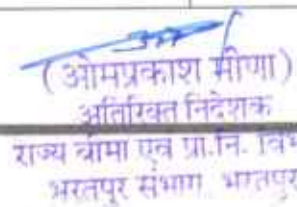 (ओमप्रकाश मीणा)
अतिरिक्त निदेशक
राज्य बीमा एवं प्रा.नि. विभ
भरतपुर संभाग भरतपुर